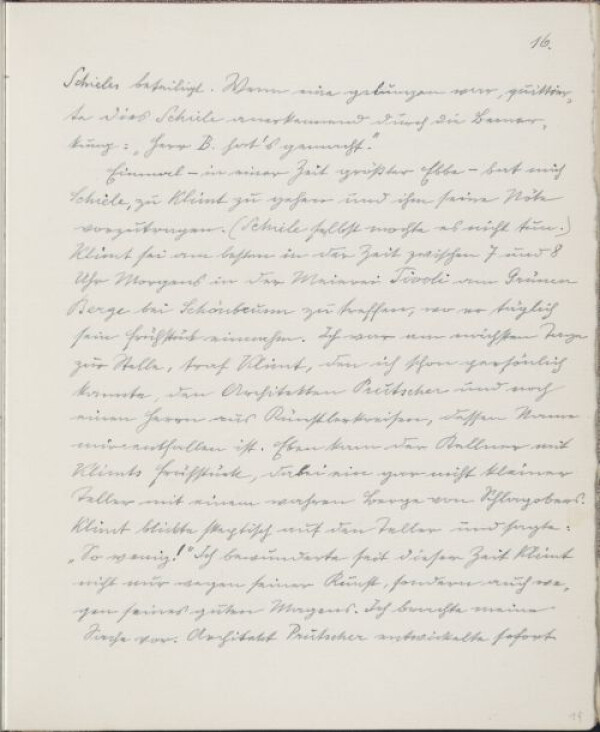 16.
Schieles beteiligt. Wenn eine gelungen war, quittier-
te dies Schiele anerkennend durch die Bemer-
kung: „Herr B. hat's gemacht."
Einmal – in einer Zeit größter Ebbe – bat mich
Schiele, zu Klimt zu gehen und ihm seine Nöte
vorzutragen. (Schiele selbst mochte es nicht tun.)
Klimt sei am besten in der Zeit zwischen 7 und 8
Uhr Morgens in der Meierei Tivoli am Grünen
Berge bei Schönbrunn zu treffen, wo er täglich
sein Frühstück einnahm. Ich war am nächsten Tage
zur Stelle, traf Klimt, den ich schon persönlich
kannte, den Architekten Prutscher und noch
einen Herrn aus Künstlerkreisen, dessen Name
mir entfallen ist. Eben kam der Kellner mit
Klimts Frühstück, dabei ein gar nicht kleiner
Teller mit einem wahren Berge von Schlagobers.
Klimt blickte skeptisch auf den Teller und sagte:
„So wenig!" Ich bewunderte seit dieser Zeit Klimt
nicht nur wegen seiner Kunst, sondern auch we-
gen seines guten Magens. Ich brachte meine
Sache vor. Architekt Prutscher entwickelte sofort